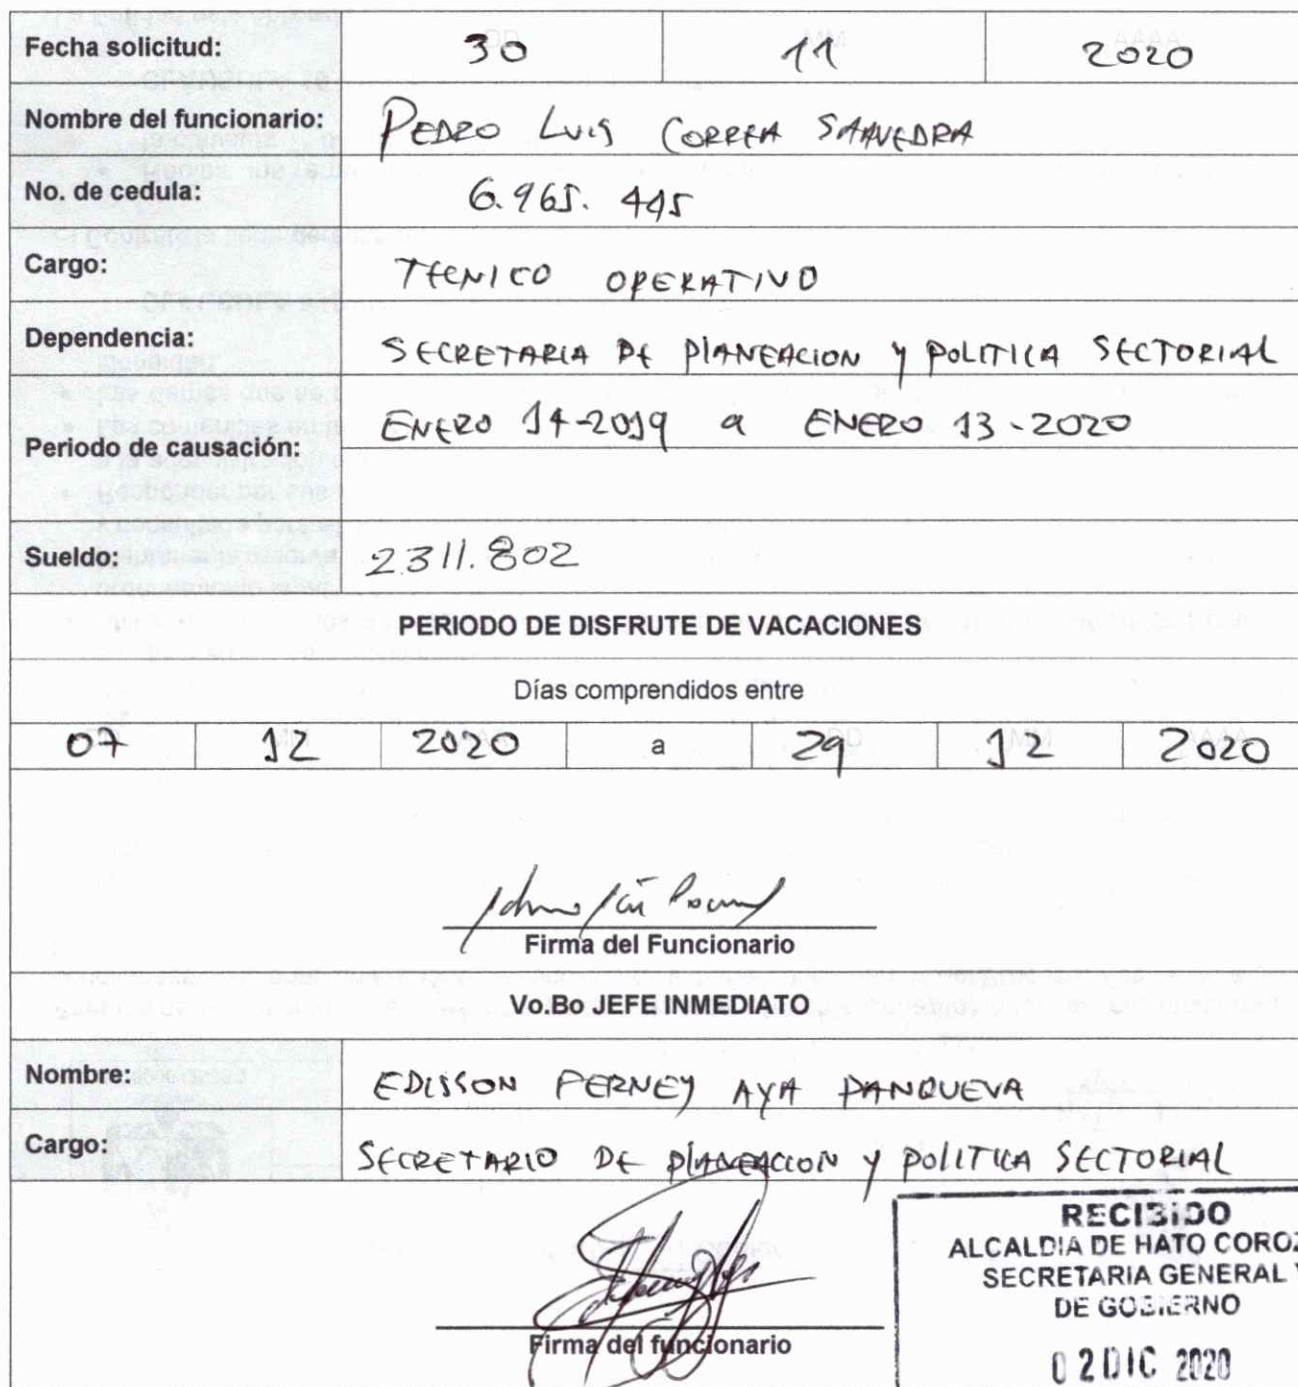 Fecha solicitud: 30 11 2020
Nombre del funcionario: PEDRO LUIS CORREA SAAVEDRA
No. de cedula: 6.965.445
Cargo: TECNICO OPERATIVO
Dependencia: SECRETARIA DE PlANEACION y POLITICA SECTORIAL
Periodo de causación: ENERO 14-2019 a ENERO 13-2020
Sueldo: 2311.802
PERIODO DE DISFRUTE DE VACACIONES
Días comprendidos entre
07 12 2020 a 29 12 2020
Firma del Funcionario
Vo.Bo JEFE INMEDIATO
Nombre: EDISSON FERNEY AYA PANQUEVA
Cargo: SECRETARIO DE PlANEACION y POLITICA SECTORIAL
Firma del funcionario
RECIBIDO
ALCALDIA DE HATO COROZ
SECRETARIA GENERAL Y
DE GOBIERNO
02 DIC 2020